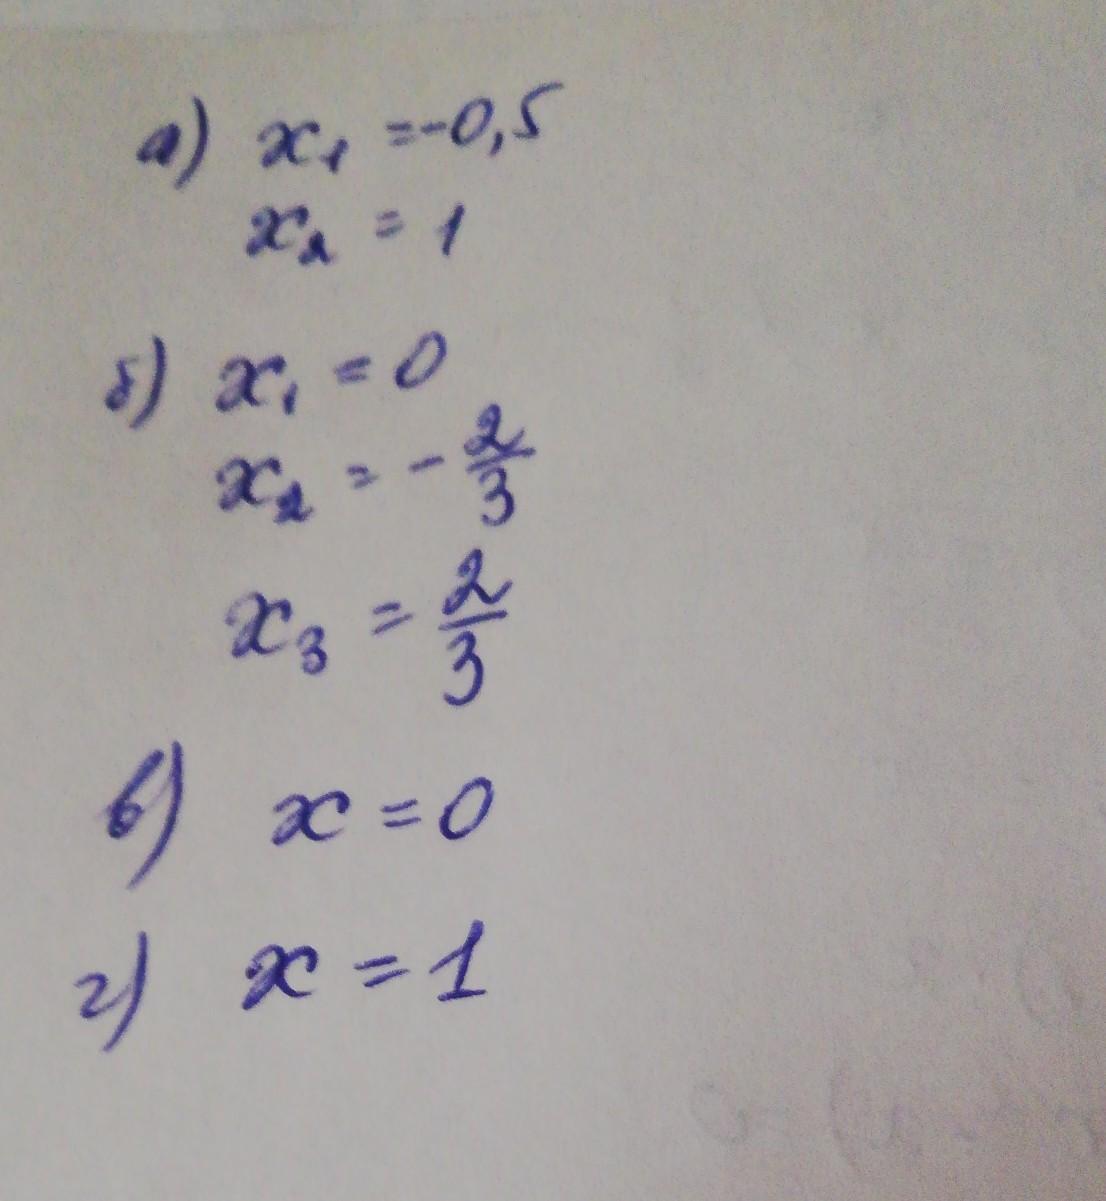 а) x₁ = -0,5
x₂ = 1
б) x₁ = 0
x₂ = - 2/3
x₃ = 2/3
в) x = 0
г) x = 1